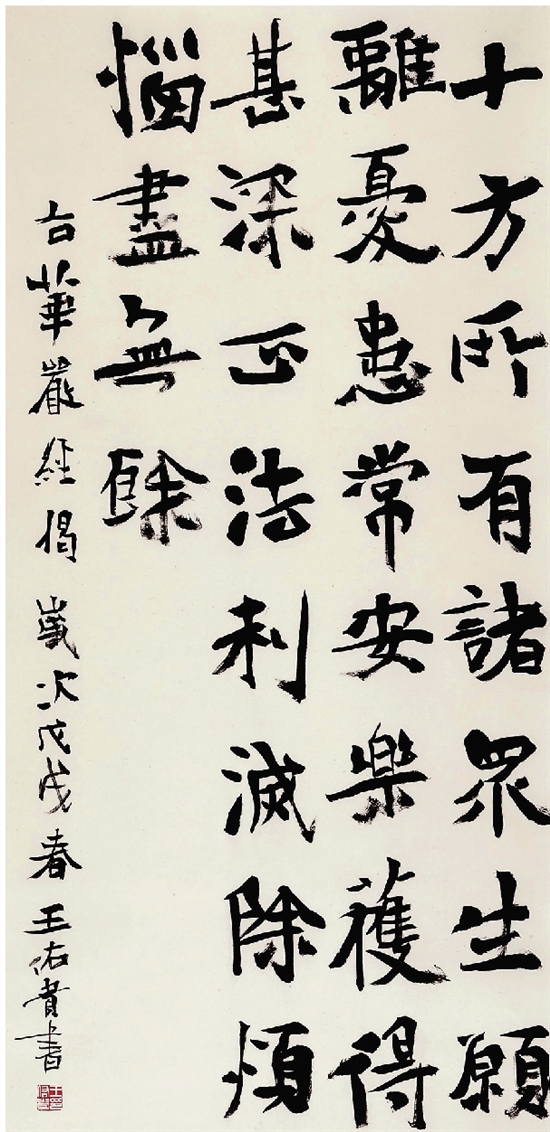 十方所有諸眾生願
離憂患常安樂獲得
甚深正法利滅除煩
惱盡無餘
右華嚴經偈 歲次戊戌春 王佑貴書